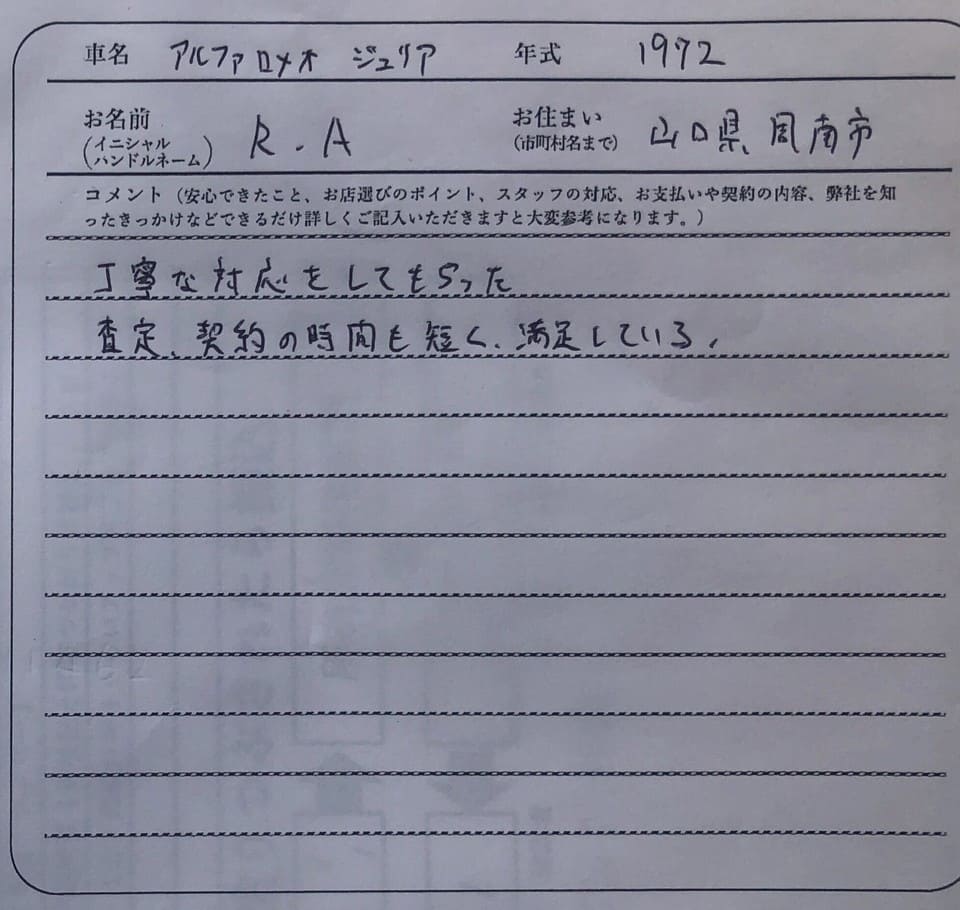 車名 アルファロメオ ジュリア 年式 1972
お名前 (イニシャル ハンドルネーム) R.A お住まい (市町村名まで) 山口県周南市
コメント（安心できたこと、お店選びのポイント、スタッフの対応、お支払いや契約の内容、弊社を知
ったきっかけなどできるだけ詳しくご記入いただきますと大変参考になります。）
丁寧な対応をしてもらった
査定、契約の時間も短く、満足している。